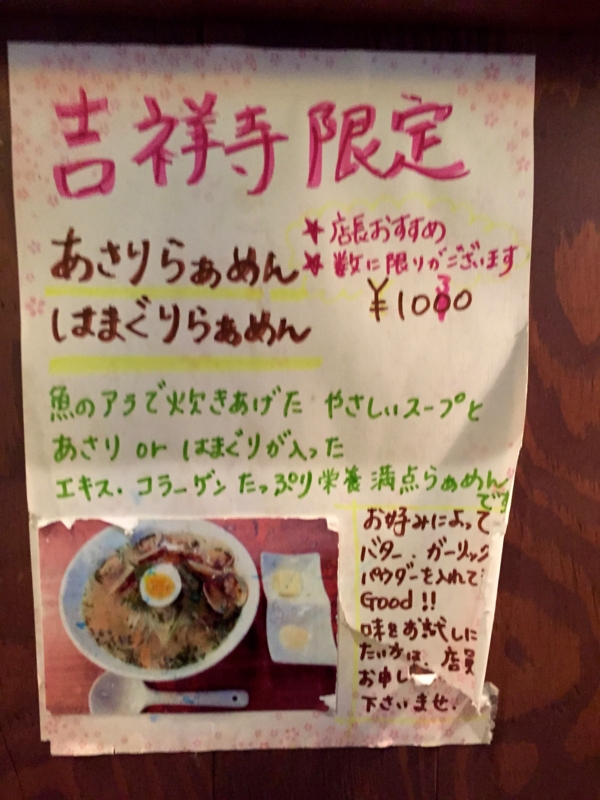 吉祥寺限定
★店長おすすめ
★数に限りがございます
あさりらぁめん
はまぐりらぁめん
¥1030
魚のアラで炊きあげた やさしいスープと
あさり or はまぐりが入った
エキス・コラーゲンたっぷり栄養満点らぁめん
です
お好みによって
バター、ガーリック
パウダーを入れて
Good!!
味をお試しに
たい方は、店員
お申し
下さいませ.